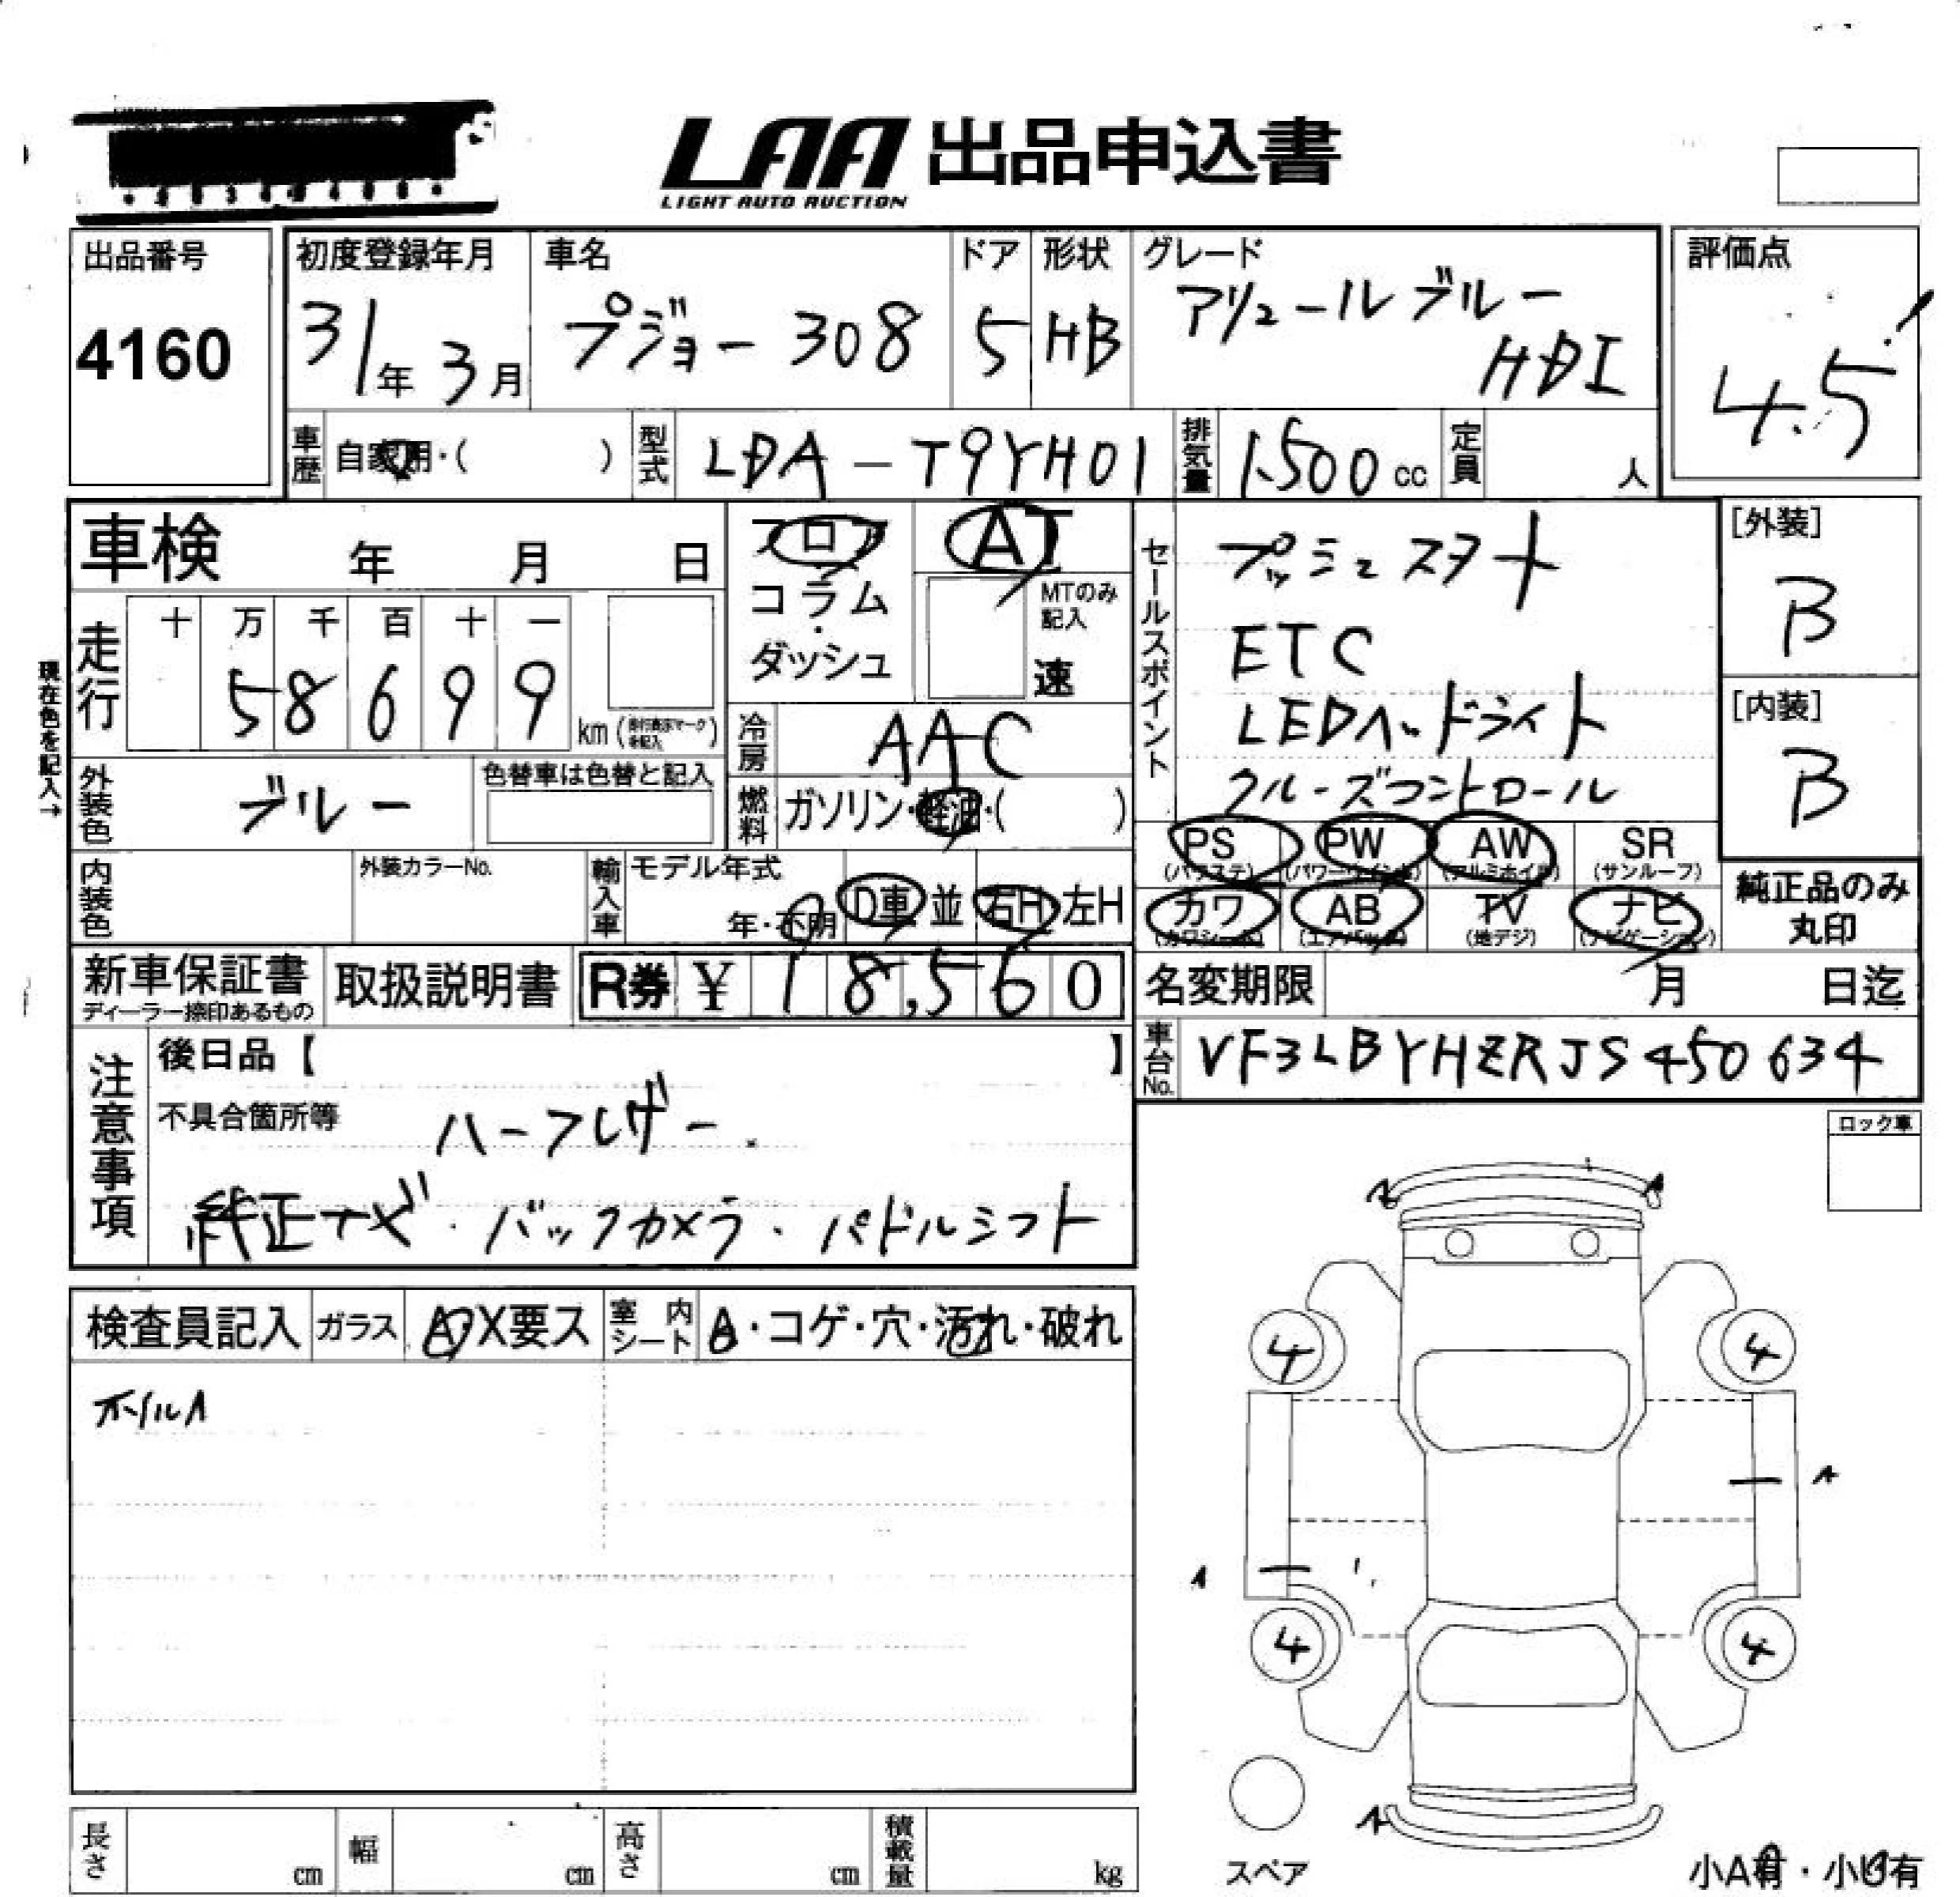 LAA 出品申込書
LIGHT AUTO AUCTION
出品番号
4160
初度登録年月
31年 3月
車名
プジョー 308
ドア
5
形状
HB
グレード
アリュールブルー
HDI
評価点
4.5
車歴 自家用・( )
型式 LDA-T9YH01
排気量 1500 cc
定員 人
車検 年 月 日
フロア
コラム
・
ダッシュ
AT
MTのみ
記入
速
走行
十 万 千 百 十 一
5 8 6 9 9
km
現在色を記入→
冷房 AAC
外装色 ブルー
色替車は色替と記入
燃料 ガソリン・軽油・( )
セールスポイント
プッシュスタート
ETC
LEDヘッドライト
クルーズコントロール
[外装]
B
[内装]
B
内装色
外装カラーNo.
輸入車
モデル年式
年・不明
D車 並 右H 左H
PS
(パワステ)
PW
(パワーウインド)
AW
(アルミホイル)
SR
(サンルーフ)
カワ
(カワシート)
AB
(エアバック)
TV
(地デジ)
ナビ
(ナビゲーション)
純正品のみ
丸印
新車保証書
ディーラー捺印あるもの
取扱説明書
R券 ¥ 18,560
名変期限 月 日迄
車台No. VF3LBYHZRJS450634
注意事項
後日品【 】
不具合箇所等
ハーフレザー.
純正ナビ・バックカメラ・パドルシフト
ロック車
検査員記入
ガラス A・X要ス
室内シート A・コゲ・穴・汚れ・破れ
ホイルA
A A
4 4
A
A
4 4
A
スペア
小A有・小U有
長さ cm
幅 cm
高さ cm
積載量 kg